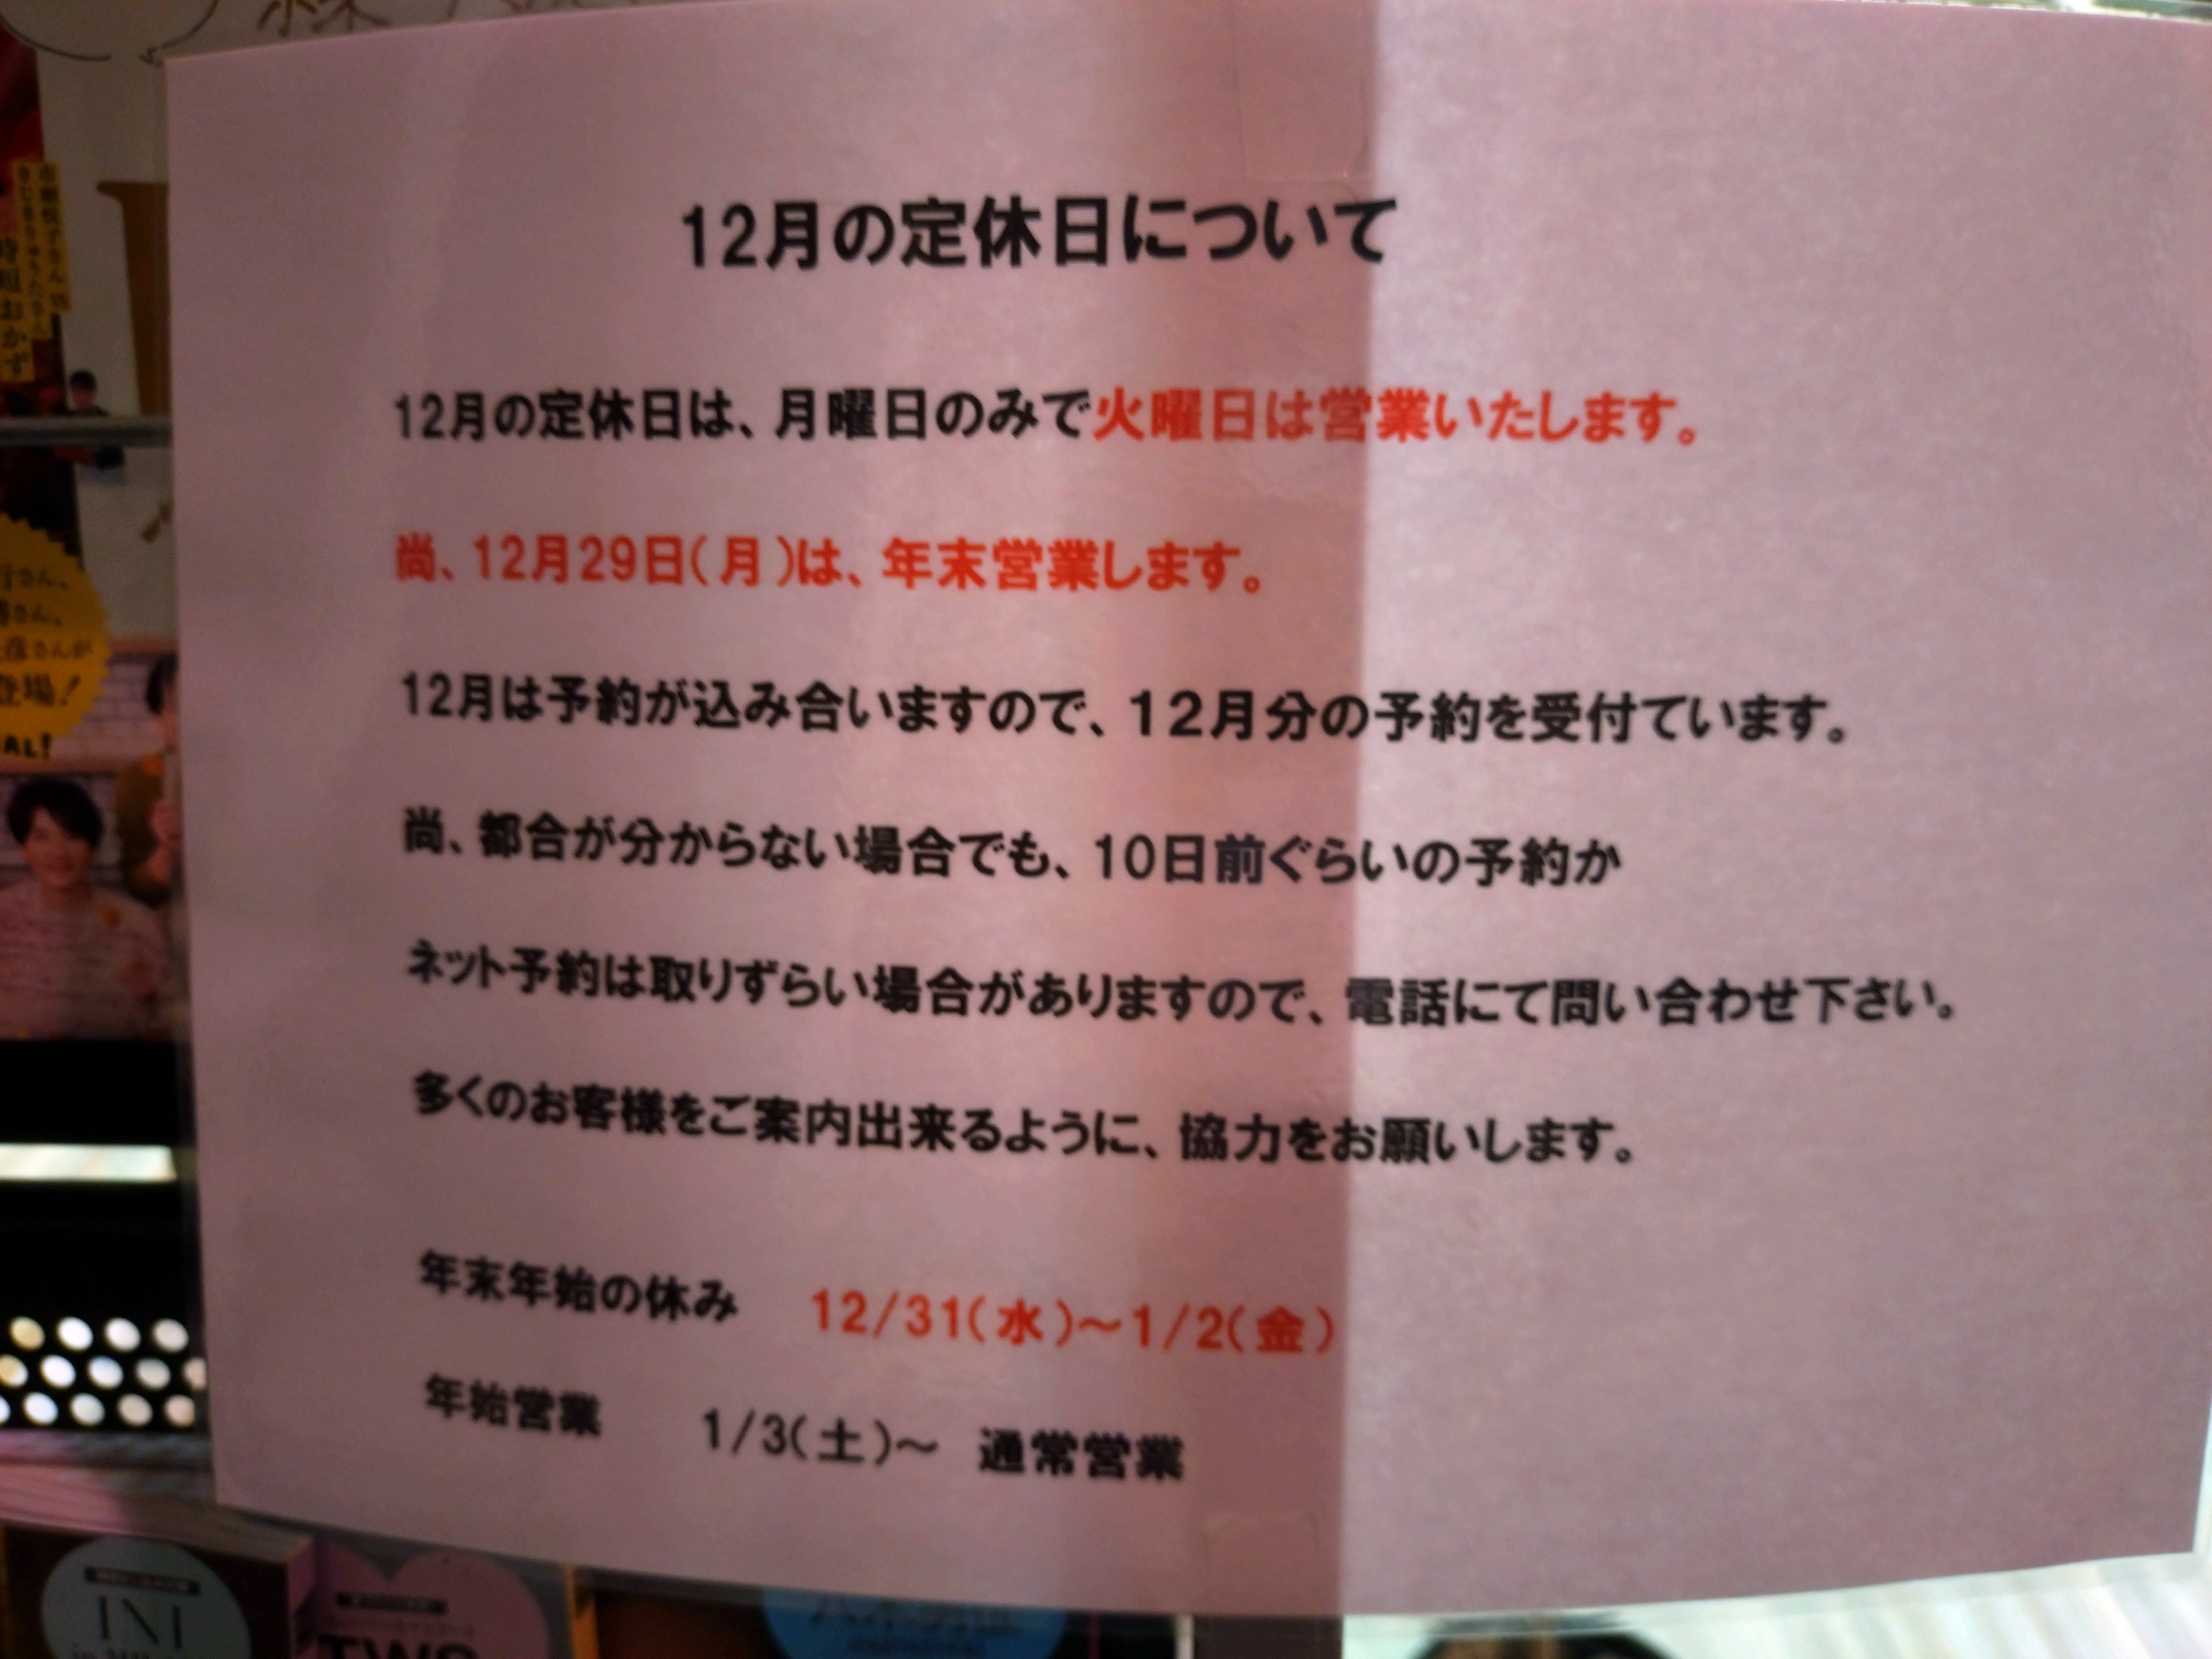 12月の定休日について
12月の定休日は、月曜日のみで火曜日は営業いたします。
尚、12月29日(月)は、年末営業します。
12月は予約が込み合いますので、12月分の予約を受付ています。
尚、都合が分からない場合でも、10日前ぐらいの予約か
ネット予約は取りずらい場合がありますので、電話にて問い合わせ下さい。
多くのお客様をご案内出来るように、協力をお願いします。
年末年始の休み 12/31(水)～1/2(金)
年始営業 1/3(土)～ 通常営業
時短おかず
登場!
AL!
INI
TWS